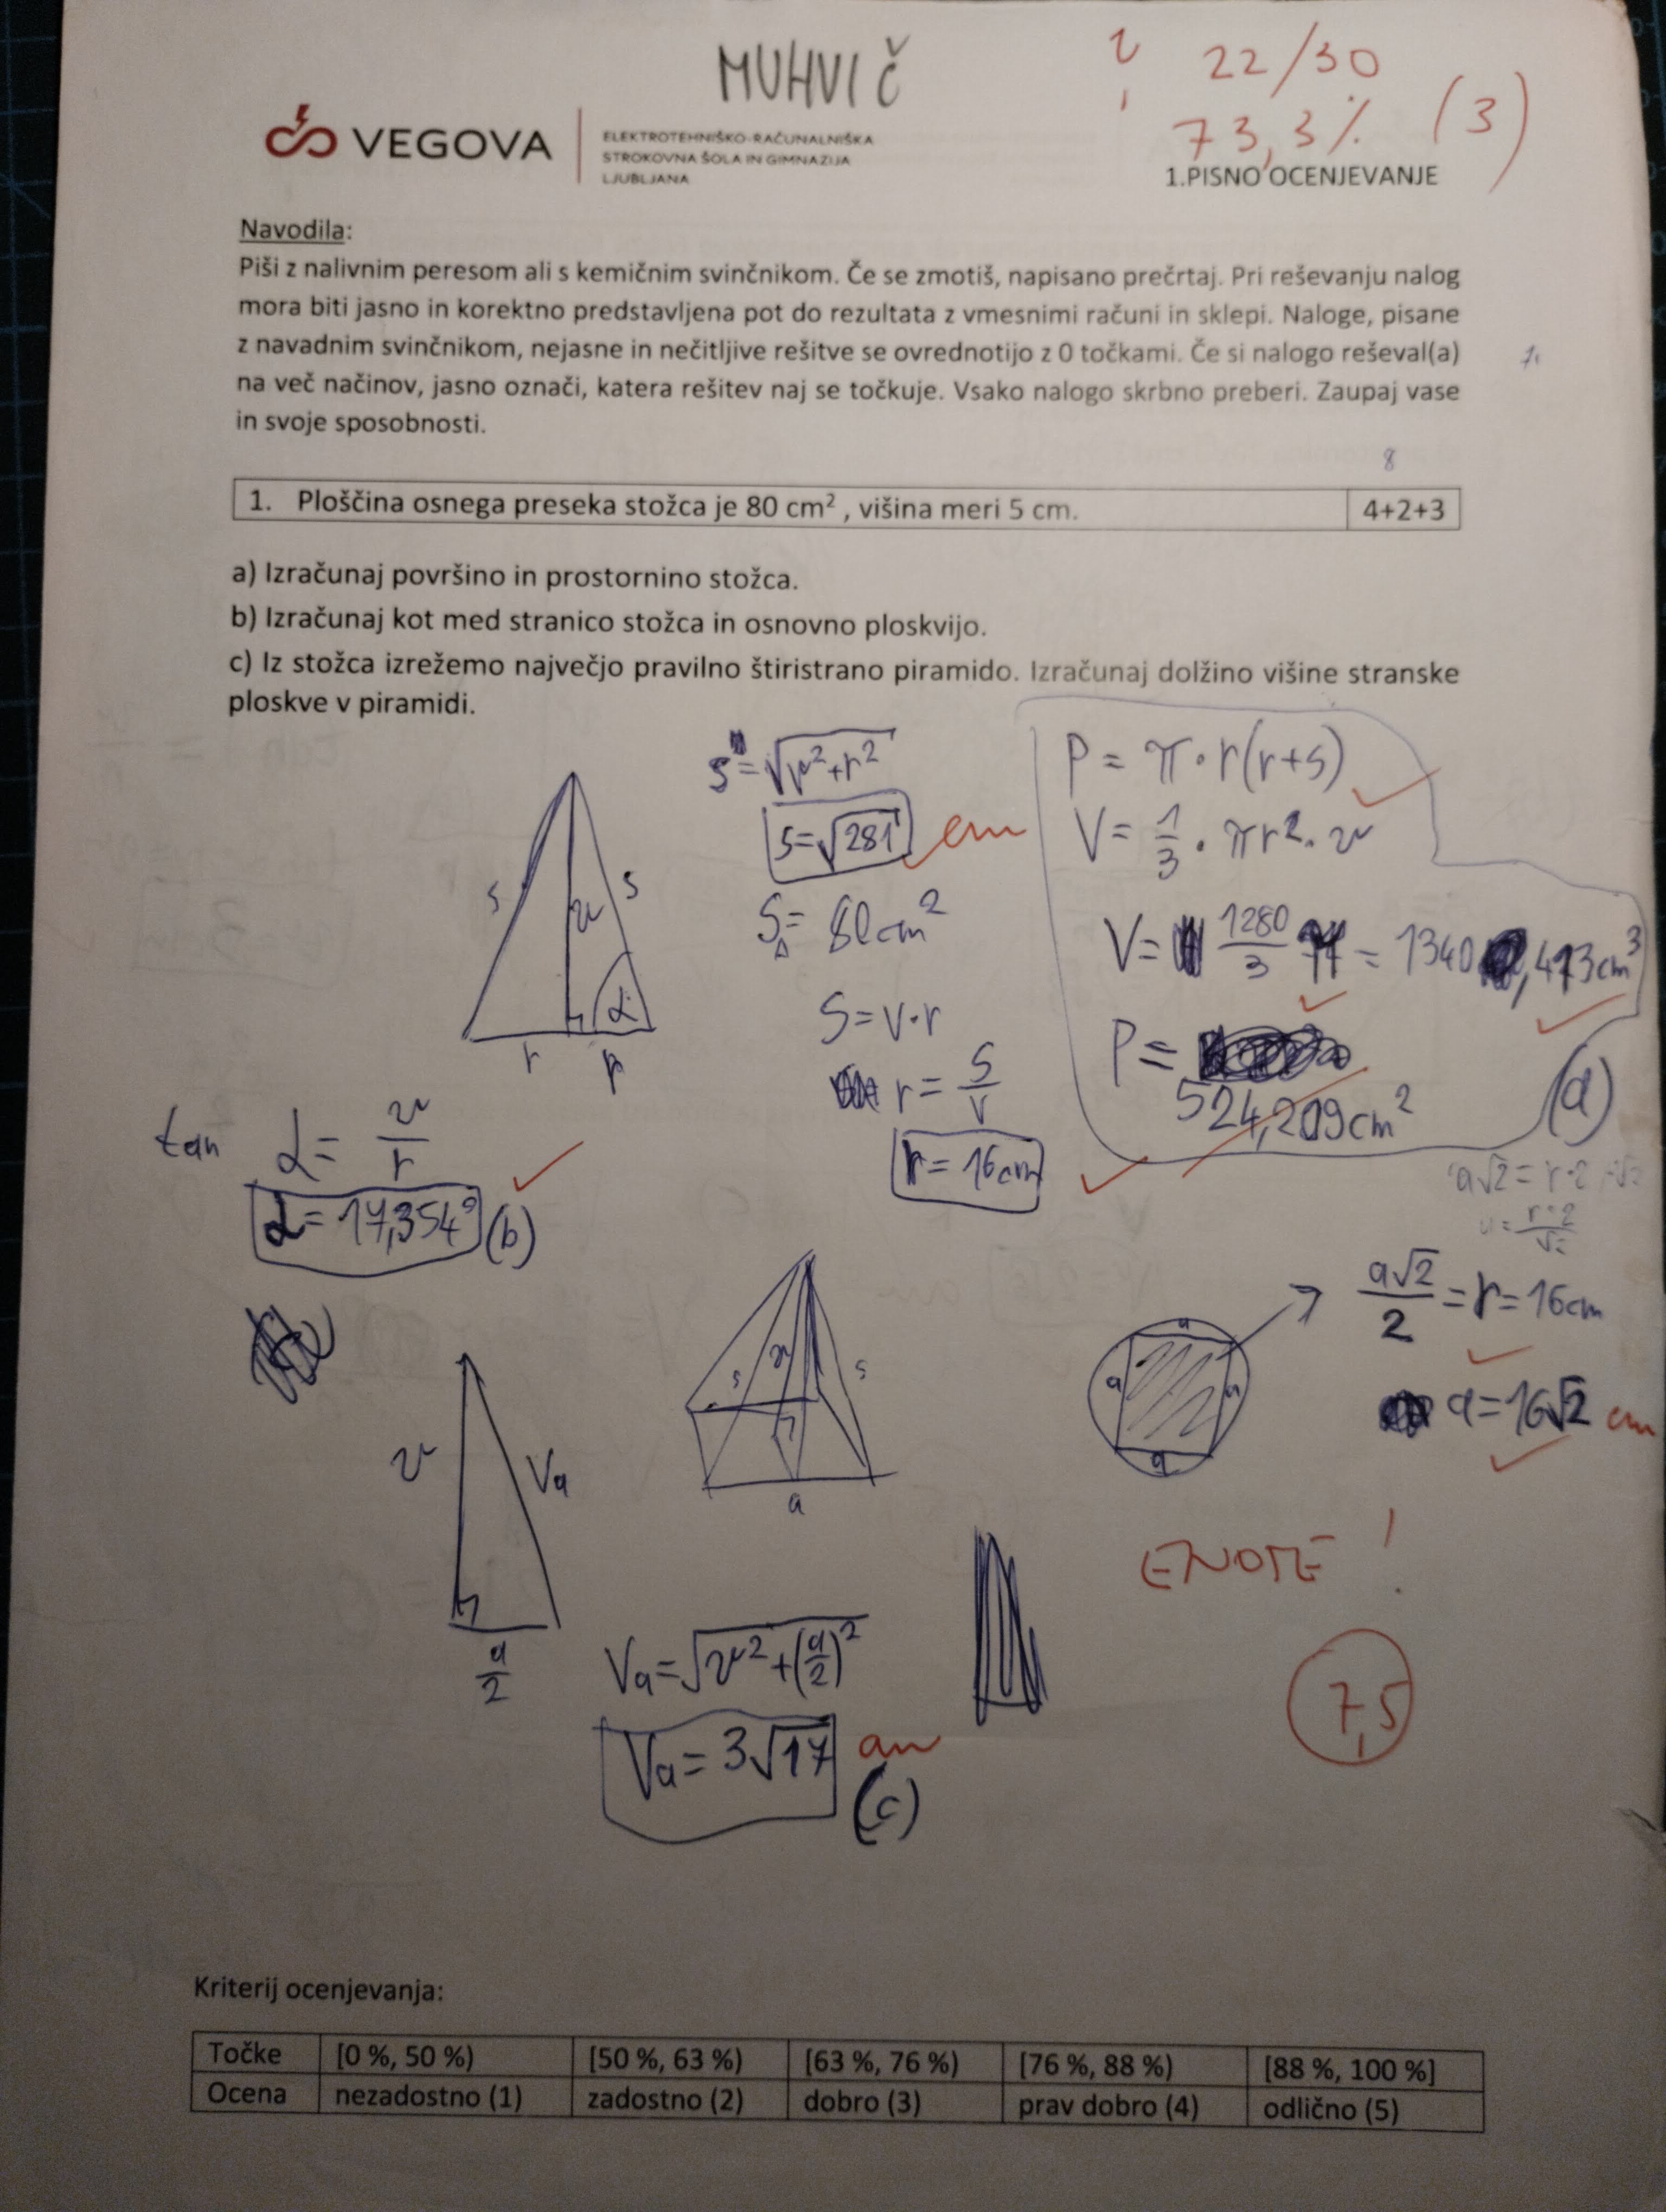 MUHVIČ
22/30
73,3% (3)
VEGOVA
ELEKTROTEHNIŠKO-RAČUNALNIŠKA
STROKOVNA ŠOLA IN GIMNAZIJA
LJUBLJANA
1.PISNO OCENJEVANJE
Navodila:
Piši z nalivnim peresom ali s kemičnim svinčnikom. Če se zmotiš, napisano prečrtaj. Pri reševanju nalog
mora biti jasno in korektno predstavljena pot do rezultata z vmesnimi računi in sklepi. Naloge, pisane
z navadnim svinčnikom, nejasne in nečitljive rešitve se ovrednotijo z 0 točkami. Če si nalogo reševal(a)
na več načinov, jasno označi, katera rešitev naj se točkuje. Vsako nalogo skrbno preberi. Zaupaj vase
in svoje sposobnosti.
8
1. Ploščina osnega preseka stožca je 80 cm², višina meri 5 cm.
4+2+3
a) Izračunaj površino in prostornino stožca.
b) Izračunaj kot med stranico stožca in osnovno ploskvijo.
c) Iz stožca izrežemo največjo pravilno štiristrano piramido. Izračunaj dolžino višine stranske
ploskve v piramidi.
s=√(v²+r²)
s=√281 cm
S△= 80cm²
S=v·r
r= S/v
r=16cm
P= π·r(r+s)
V= 1/3 · πr²·v
V= 1280/3 π = 1340,413cm³
P=
524,209cm²
(a)
s
v
s
α
r
r
tan α= v/r
α=17,354° (b)
a√2/2 =r=16cm
a=16√2 cm
s
v
s
a
a
a
a
a
v
Va
a/2
Va=√(v²+(a/2)²)
Va=3√17 cm
(c)
ENOTE!
7,5
Kriterij ocenjevanja:
Točke [0 %, 50 %) [50 %, 63 %) [63 %, 76 %) [76 %, 88 %) [88 %, 100 %]
Ocena nezadostno (1) zadostno (2) dobro (3) prav dobro (4) odlično (5)